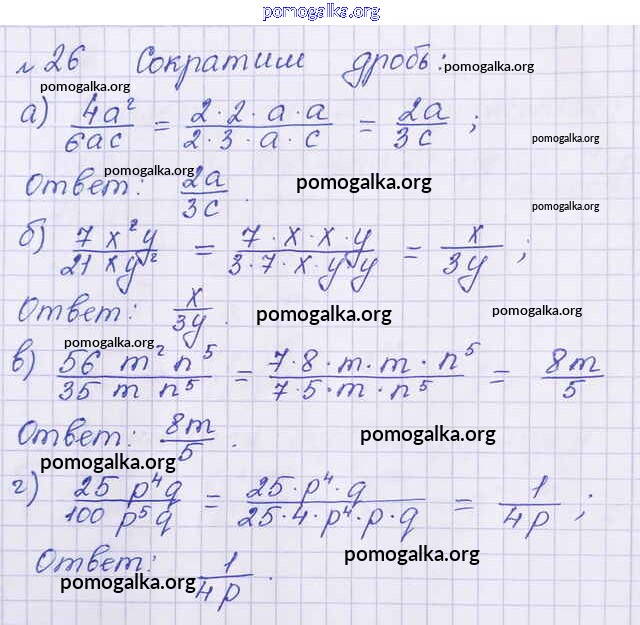 pomogalka.org
№26 Сократим дробь: pomogalka.org
pomogalka.org
а) 4a²/6ac = 2·2·a·a/2·3·a·c = 2a/3c ; pomogalka.org
pomogalka.org
Ответ: 2a/3c . pomogalka.org
pomogalka.org
б) 7x²y/21xy² = 7·x·x·y/3·7·x·y·y = x/3y ;
Ответ: x/3y . pomogalka.org pomogalka.org
pomogalka.org
в) 56 m² n⁵/35 m n⁵ = 7·8·m·m·n⁵/7·5·m·n⁵ = 8m/5
Ответ: 8m/5 . pomogalka.org
pomogalka.org
г) 25 p⁴q/100 p⁵q = 25·p⁴·q/25·4·p⁴·p·q = 1/4p ;
Ответ: 1/4p . pomogalka.org
pomogalka.org